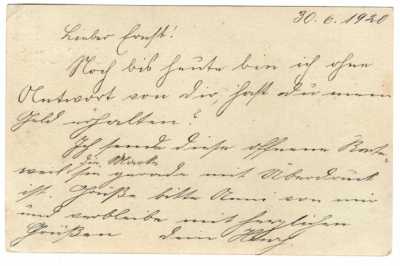 30.6.1920
Lieber Ernst!
Noch bis heute bin ich ohne
Antwort von Dir, hast du mein
Geld erhalten?
Ich sende diese offene Karte
die Marke
gerade mit Überdruck
ist. Grüße bitte Anna von mir
und verbleibe mit herzlichen
Grüßen Dein